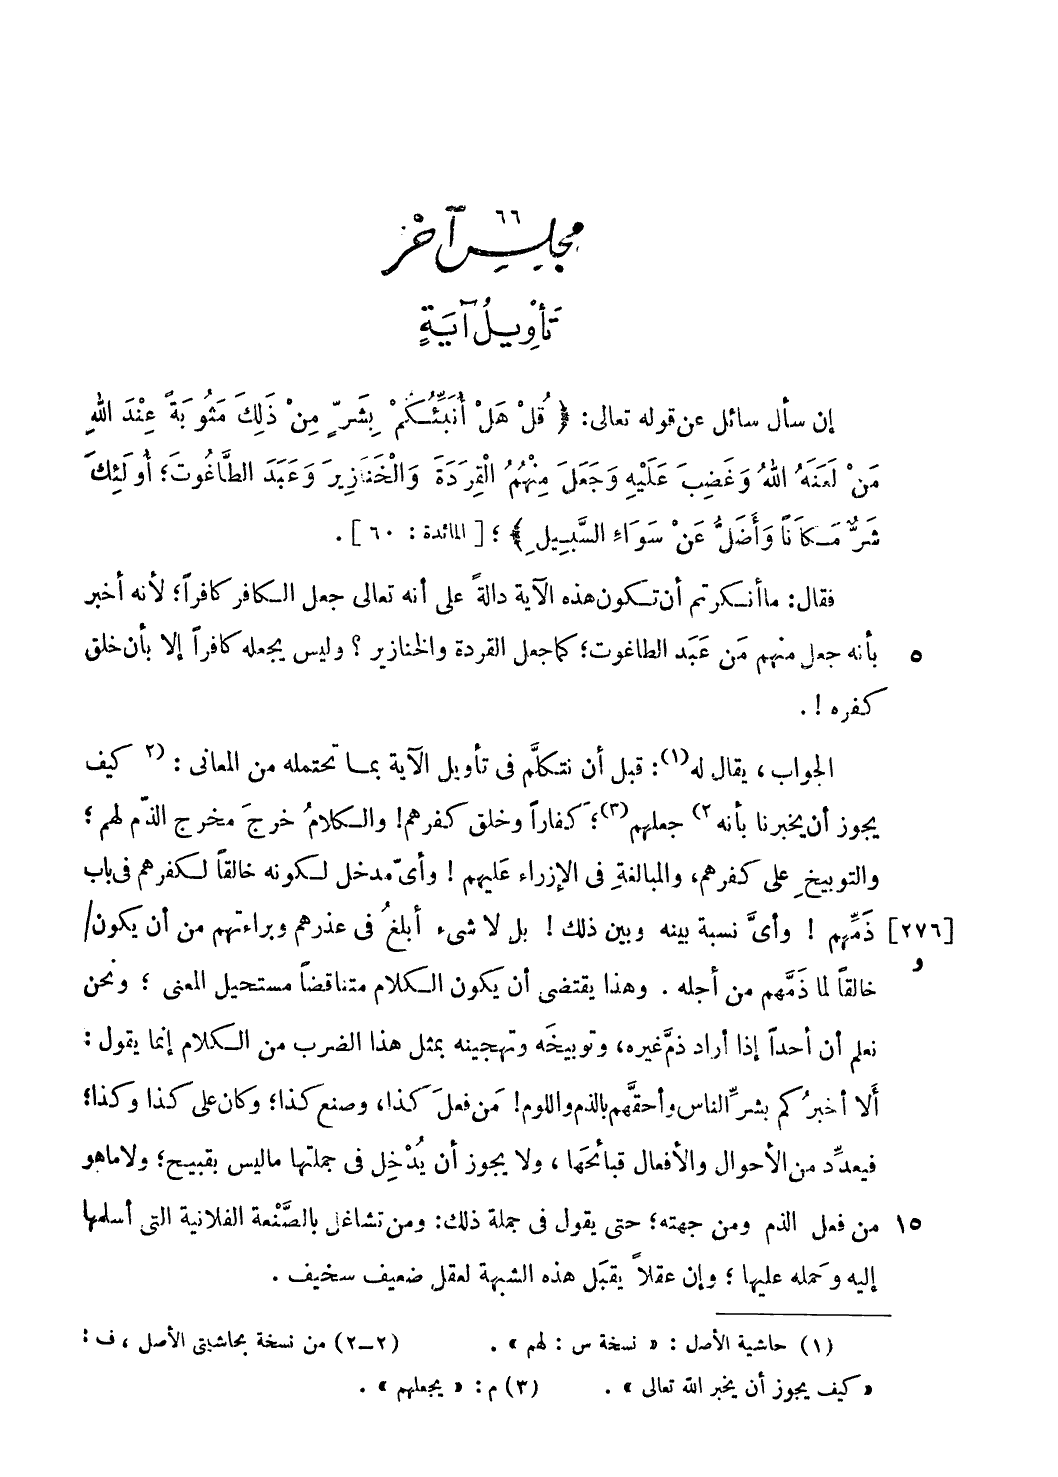 ٦٦
مجلس آخر
تَأْوِيلُ آيَةٍ
إن سأل سائل عن قوله تعالى: ﴿ قُلْ هَلْ أُنَبِّئُكُمْ بِشَرٍّ مِنْ ذَلِكَ مَثُوبَةً عِنْدَ اللهِ
مَنْ لَعَنَهُ اللهُ وَغَضِبَ عَلَيْهِ وَجَعَلَ مِنْهُمُ الْقِرَدَةَ وَالْخَنَازِيرَ وَعَبَدَ الطَّاغُوتَ؛ أُولَئِكَ
شَرٌّ مَكَانًا وَأَضَلُّ عَنْ سَوَاءِ السَّبِيلِ ﴾؛ [ المائدة : ٦٠ ] .
فقال: ما أنكرتم أن تكون هذه الآية دالةً على أنه تعالى جعل الكافر كافراً؛ لأنه أخبر
٥ بأنه جعل منهم مَن عَبَد الطاغوت؛ كما جعل القردة والخنازير ؟ وليس يجعله كافراً إلا بأن خلق
كفره ! .
الجواب، يقال له(١): قبل أن نتكلَّم فى تأويل الآية بما تحتمله من المعانى : (٢ كيف
يجوز أن يخبرنا بأنه ٢) جعلهم(٣)؛ كفاراً وخلق كفرهم! والكلامُ خرجَ مخرج الذّم لهم ؛
والتوبيخِ على كفرهم، والمبالغةِ فى الإزراء عَليهم ! وأىّ مدخل لكونه خالقاً لكفرهم فى باب
[٢٧٦] ذَمِّهم ! وأىَّ نسبة بينه وبين ذلك ! بل لا شىء أبلغُ فى عذرهم وبراءتهم من أن يكون/
و
خالقاً لما ذَمَّهم من أجله . وهذا يقتضى أن يكون الكلام متناقضاً مستحيل المعنى ؛ ونحن
نعلم أن أحداً إذا أراد ذمَّ غيره، وتوبيخَه وتهجينه بمثل هذا الضرب من الكلام إنما يقول :
أَلا أخبرُكم بشرِّ الناس وأحقَّهم بالذم واللوم! مَن فعلَ كذا، وصنع كذا؛ وكان على كذا وكذا؛
فيعدِّد من الأحوال والأفعال قبائحَها ، ولا يجوز أن يُدْخِل فى جملتها ما ليس بقبيح؛ ولا ما هو
١٥ من فعل الذم ومن جهته؛ حتى يقول فى جملة ذلك: ومن تشاغل بالصَّنْعة الفلانية التى أسلمها
إليه وحَمله عليها ؛ وإن عقلاً يقبَل هذه الشبهة لعقل ضعيف سخيف .
(١) حاشية الأصل : « نسخة س : لهم » . (٢-٢) من نسخة بحاشيتى الأصل ، ف :
« كيف يجوز أن يخبر الله تعالى » . (٣) م : « يجعلهم » .